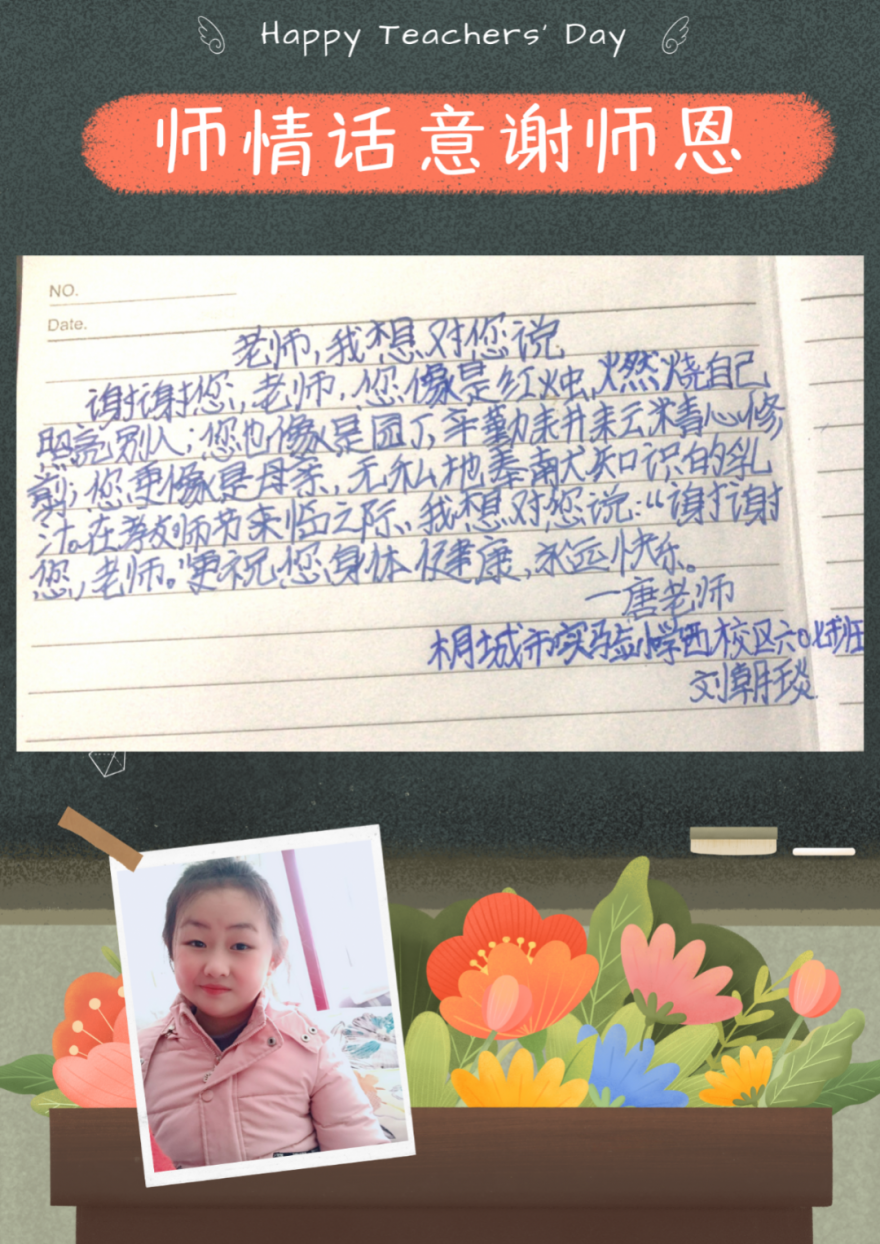 Happy Teachers' Day
师情话意谢师恩
NO.
Date.
老师,我想对您说
谢谢您,老师,您像是红烛,燃烧自己
照亮别人;您也像是园丁,辛勤来来去去精心修
剪;您更像是母亲,无私地奉献知识的乳
汁。在教师节来临之际,我想对您说:“谢谢
您,老师。”更祝您身体健康,永远快乐。
一唐老师
桐城市实验小学西校区六 班
刘朝琰